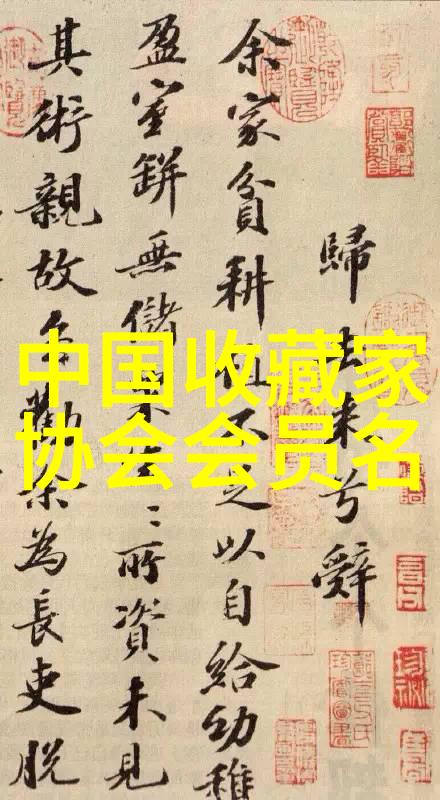 中国收藏家
协会会员名
歸去来兮辞
余家貧耕植不足以自給幼稚
盈室缾無儲粟生〻所資未見
其術親故多勸余為長吏脫